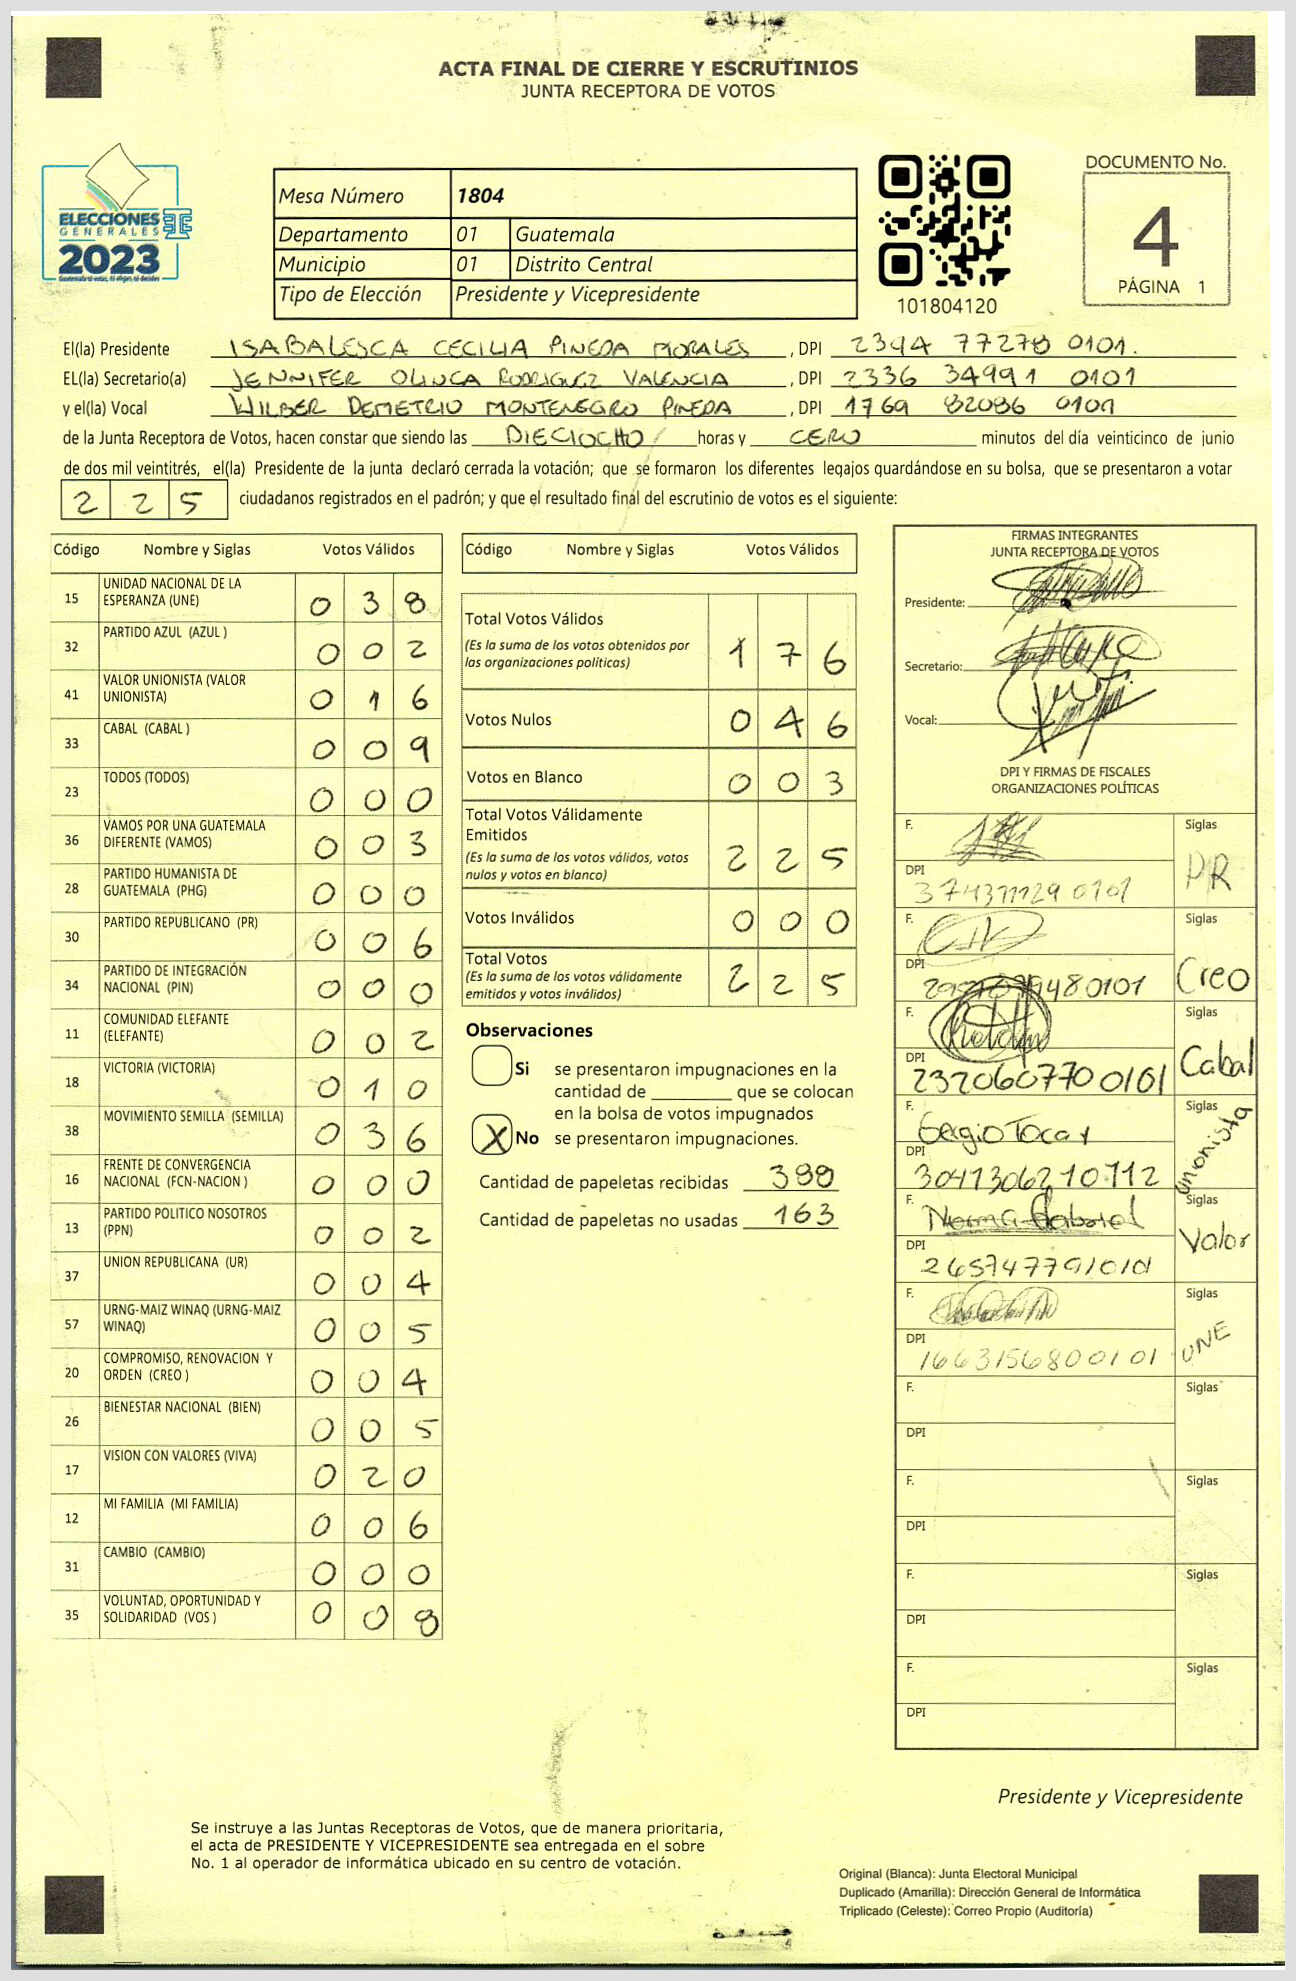 ACTA FINAL DE CIERRE Y ESCRUTINIOS
JUNTA RECEPTORA DE VOTOS
ELECCIONES
GENERALES
2023
Mesa Número 1804
Departamento 01 Guatemala
Municipio 01 Distrito Central
Tipo de Elección Presidente y Vicepresidente
101804120
DOCUMENTO No.
4
PÁGINA 1
El(la) Presidente ISABALESCA CECILIA PINEDA MORALES, DPI 2394 77278 0101.
EL(la) Secretario(a) JENNIFER OLINCA RODRIGUEZ VALENCIA, DPI 2336 34991 0101
y el(la) Vocal WILBER DEMETRIO MONTENEGRO PINEDA, DPI 1769 82086 0101
de la Junta Receptora de Votos, hacen constar que siendo las DIECIOCHO horas y CERO minutos del día veinticinco de junio
de dos mil veintitrés, el(la) Presidente de la junta declaró cerrada la votación; que se formaron los diferentes legajos quardándose en su bolsa, que se presentaron a votar
225 ciudadanos registrados en el padrón; y que el resultado final del escrutinio de votos es el siguiente:
Código Nombre y Siglas Votos Válidos
15 UNIDAD NACIONAL DE LA ESPERANZA (UNE) 038
32 PARTIDO AZUL (AZUL ) 002
41 VALOR UNIONISTA (VALOR UNIONISTA) 016
33 CABAL (CABAL ) 009
23 TODOS (TODOS) 000
36 VAMOS POR UNA GUATEMALA DIFERENTE (VAMOS) 003
28 PARTIDO HUMANISTA DE GUATEMALA (PHG) 000
30 PARTIDO REPUBLICANO (PR) 006
34 PARTIDO DE INTEGRACIÓN NACIONAL (PIN) 000
11 COMUNIDAD ELEFANTE (ELEFANTE) 002
18 VICTORIA (VICTORIA) 010
38 MOVIMIENTO SEMILLA (SEMILLA) 036
16 FRENTE DE CONVERGENCIA NACIONAL (FCN-NACION ) 000
13 PARTIDO POLITICO NOSOTROS (PPN) 002
37 UNION REPUBLICANA (UR) 004
57 URNG-MAIZ WINAQ (URNG-MAIZ WINAQ) 005
20 COMPROMISO, RENOVACION Y ORDEN (CREO ) 004
26 BIENESTAR NACIONAL (BIEN) 005
17 VISION CON VALORES (VIVA) 020
12 MI FAMILIA (MI FAMILIA) 006
31 CAMBIO (CAMBIO) 000
35 VOLUNTAD, OPORTUNIDAD Y SOLIDARIDAD (VOS ) 008
Código Nombre y Siglas Votos Válidos
Total Votos Válidos
(Es la suma de los votos obtenidos por las organizaciones políticas) 176
Votos Nulos 046
Votos en Blanco 003
Total Votos Válidamente Emitidos
(Es la suma de los votos válidos, votos nulos y votos en blanco) 225
Votos Inválidos 000
Total Votos
(Es la suma de los votos válidamente emitidos y votos inválidos) 225
Observaciones
Si se presentaron impugnaciones en la
cantidad de ________ que se colocan
en la bolsa de votos impugnados
X No se presentaron impugnaciones.
Cantidad de papeletas recibidas 388
Cantidad de papeletas no usadas 163
FIRMAS INTEGRANTES
JUNTA RECEPTORA DE VOTOS
Presidente:
Secretario:
Vocal:
DPI Y FIRMAS DE FISCALES
ORGANIZACIONES POLÍTICAS
F. Siglas
DPI PR
F. Siglas
DPI Creo
F. Siglas
DPI 2320607700101 Cabal
F. Sergio Tocay Siglas
DPI 3041306210112 unionista
F. Norma Siglas
DPI Valor
F. Siglas
DPI 1663156800101 UNE
F. Siglas
DPI
F. Siglas
DPI
F. Siglas
DPI
F. Siglas
DPI
Presidente y Vicepresidente
Se instruye a las Juntas Receptoras de Votos, que de manera prioritaria,
el acta de PRESIDENTE Y VICEPRESIDENTE sea entregada en el sobre
No. 1 al operador de informática ubicado en su centro de votación.
Original (Blanca): Junta Electoral Municipal
Duplicado (Amarilla): Dirección General de Informática
Triplicado (Celeste): Correo Propio (Auditoría)